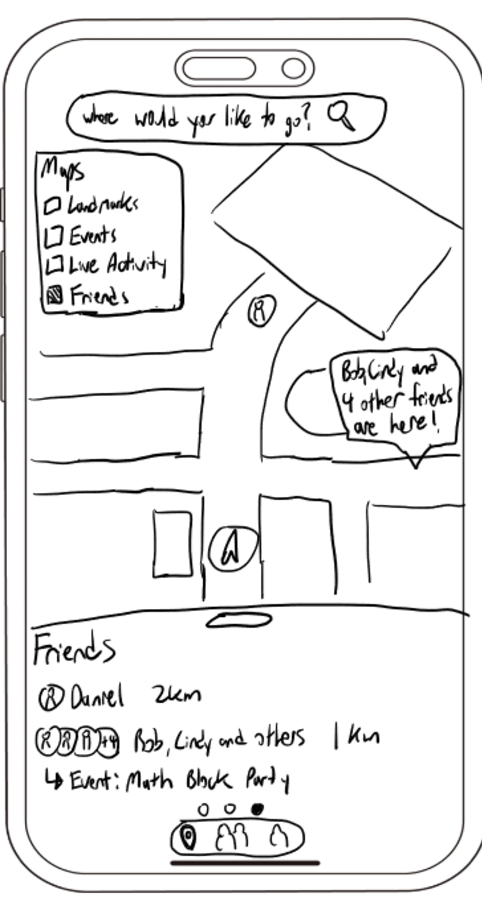 where would you like to go?
Maps
Landmarks
Events
Live Activity
Friends
Bob, Cindy and
4 other friends
are here!
Friends
Daniel 2km
+4 Bob, Cindy and others 1 km
↳ Event: Math Block Party